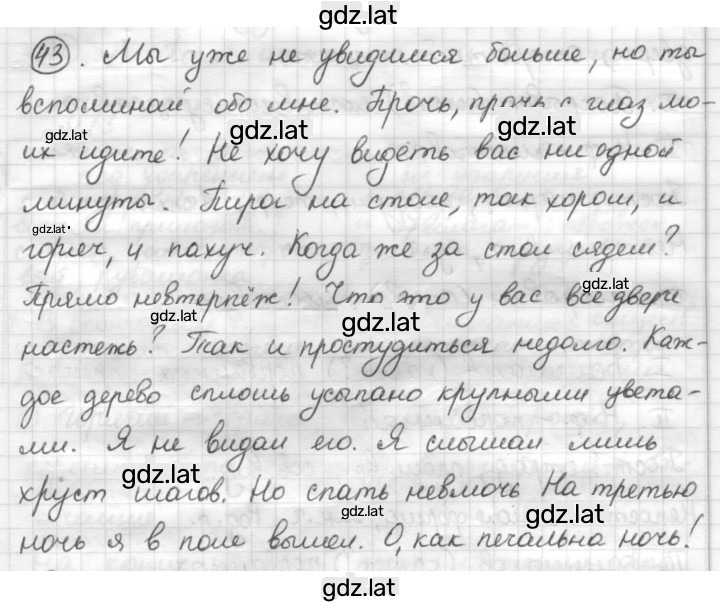 gdz.lat
43. Мы уже не увидимся больше, но ты
вспоминай обо мне. Прочь, прочь с глаз мо-
gdz.lat gdz.lat gdz.lat
их идите! Не хочу видеть вас ни одной
минуты. Пирог на столе, так хорош, и
gdz.lat
горяч, и пахуч. Когда же за стол сядем?
gdz.lat
Прямо невтерпёж! Что это у вас все двери
gdz.lat gdz.lat
настежь? Так и простудиться недолго. Каж-
дое дерево сплошь усыпано крупными цвета-
ми. Я не видал его. Я слышал лишь
gdz.lat
хруст шагов. Но спать невмочь На третью
gdz.lat gdz.lat
ночь я в поле вышел. О, как печальна ночь!
gdz.lat